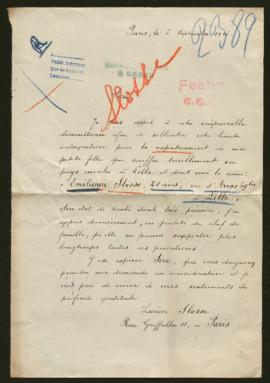 Paris, le 6 Septembre
R
2389
Slosse
Sire,
Je fais appel à votre inépuisable
bienveillance afin de solliciter votre haute
intervention pour le rapatriement de ma
petite fille qui souffre terriblement en
pays envahi à Lille et dont voici le nom:
Emilienne Slosse, 21 ans, rue d'Arras
à Lille.
Son état de santé étant très précaire, j'ai
grand père de chef de
famille, qu'elle ne pourra supporter plus
longtemps toutes ces privations
J'ose espérer Sire, que vous daignerez
prendre ma demande en considération et je
vous prie de croire à mes sentiments de
profonde gratitude.
Lucien Slosse
Rue Greffulhe 11, à Paris